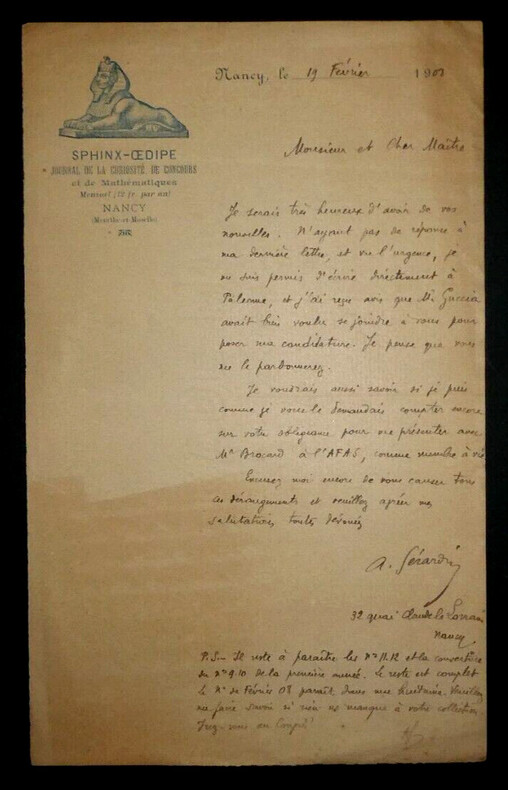 Nancy, le 19 Février 1908
SPHINX-ŒDIPE
JOURNAL DE LA CURIOSITÉ DE CONCOURS
et de Mathématiques
Mensuel (12 fr. par an)
NANCY
(Meurthe-et-Moselle)
Monsieur et Cher Maître
Je serais très heureux d'avoir de vos
nouvelles. N'ayant pas de réponse à
ma dernière lettre, et vu l'urgence, je
me suis permis d'écrire directement à
Palerme, et j'ai reçu avis que Mr Guccia
avait bien voulu se joindre à vous pour
poser ma candidature. Je pense que vous
me le pardonnerez.
Je voudrais aussi savoir si je puis
comme je vous le demandais compter encore
sur votre obligeance pour me présenter avec
Mr Brocard à l'AFAS, comme membre à vie
Excusez moi encore de vous causer tous
ces dérangements et veuillez agréer mes
salutations toutes dévouées
A. Gérardin
32 quai Claude le Lorrain
Nancy
P.S. - Il reste à paraître les nos 11.12 et la couverture
du no 9.10 de la première année. Le reste est complet
le No de Février 08 paraît dans une huitaine. Veuillez
me faire savoir si rien ne manque à votre collection.